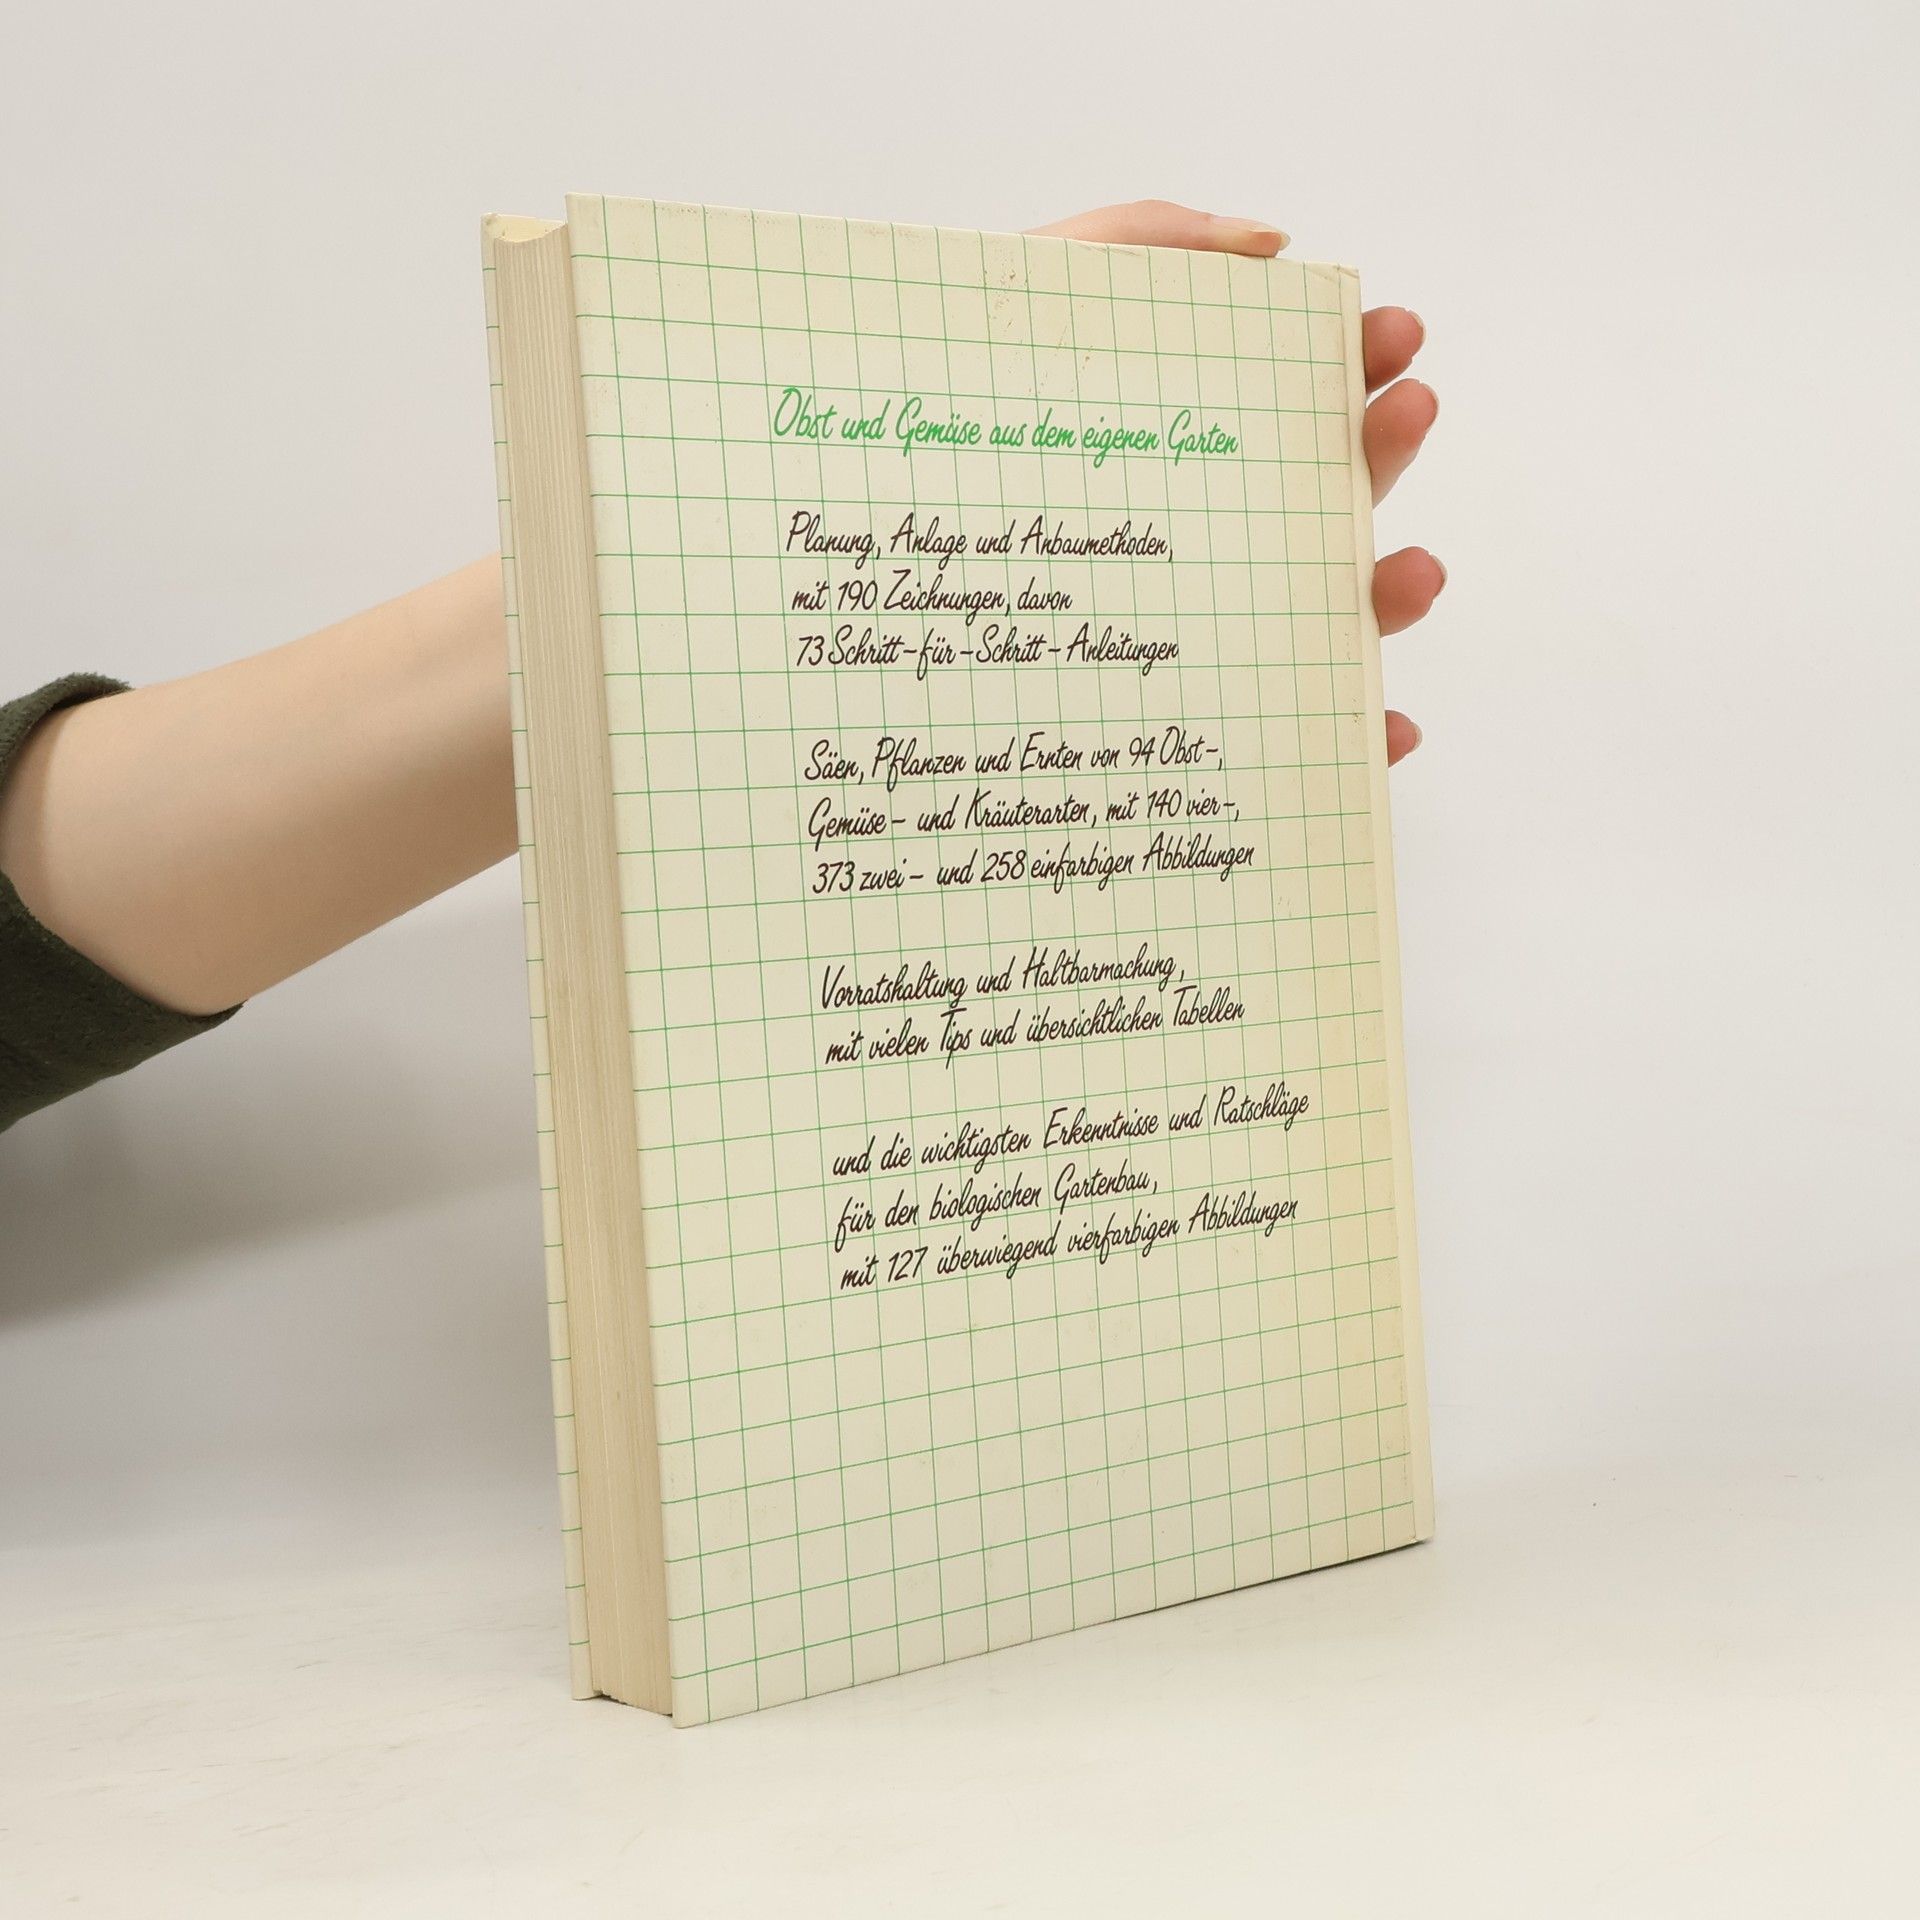 Obst und Gemüse aus dem eigenen Garten
Planung, Anlage und Anbaumethoden,
mit 190 Zeichnungen, davon
73 Schritt-für-Schritt-Anleitungen
Säen, Pflanzen und Ernten von 94 Obst-,
Gemüse- und Kräuterarten, mit 140 vier-,
373 zwei- und 258 einfarbigen Abbildungen
Vorratshaltung und Haltbarmachung,
mit vielen Tips und übersichtlichen Tabellen
und die wichtigsten Erkenntnisse und Ratschläge
für den biologischen Gartenbau,
mit 127 überwiegend vierfarbigen Abbildungen